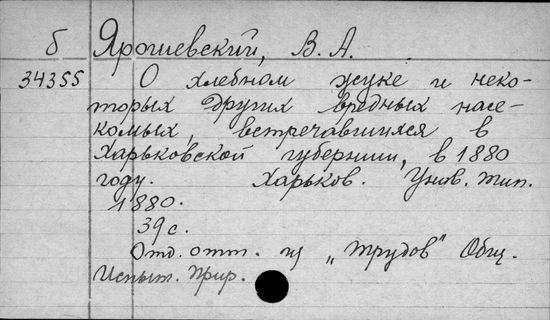 б Ярошевский, В. А.
34355 О хлебном жуке и неко-
торых других вредных насе-
комых, встречавшихся в
Харьковской губернии, в 1880
году. Харьков. Унив. тип.
1880.
39 с.
Отд. отт. из „Трудов" Общ.
Испыт. Прир.